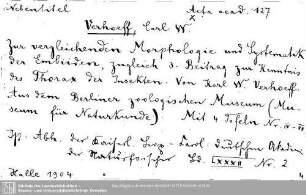 Nebentitel
Acta acad. 127
x
Verhoeff, Carl W.
Zur vergleichenden Morphologie und Systematik
der Embiiden, zugleich 3. Beitrag zur Kenntnis
des Thorax der Insekten. Von Karl W. Verhoeff.
Aus dem Berliner zoologischen Museum (Mu-
seum für Naturkunde). Mit 4 Tafeln
Abh. der Kaiserl. Leop.-Carol. Deutschen Akademie
der Naturforscher Bd. LXXXII Nr. 2
Halle 1904